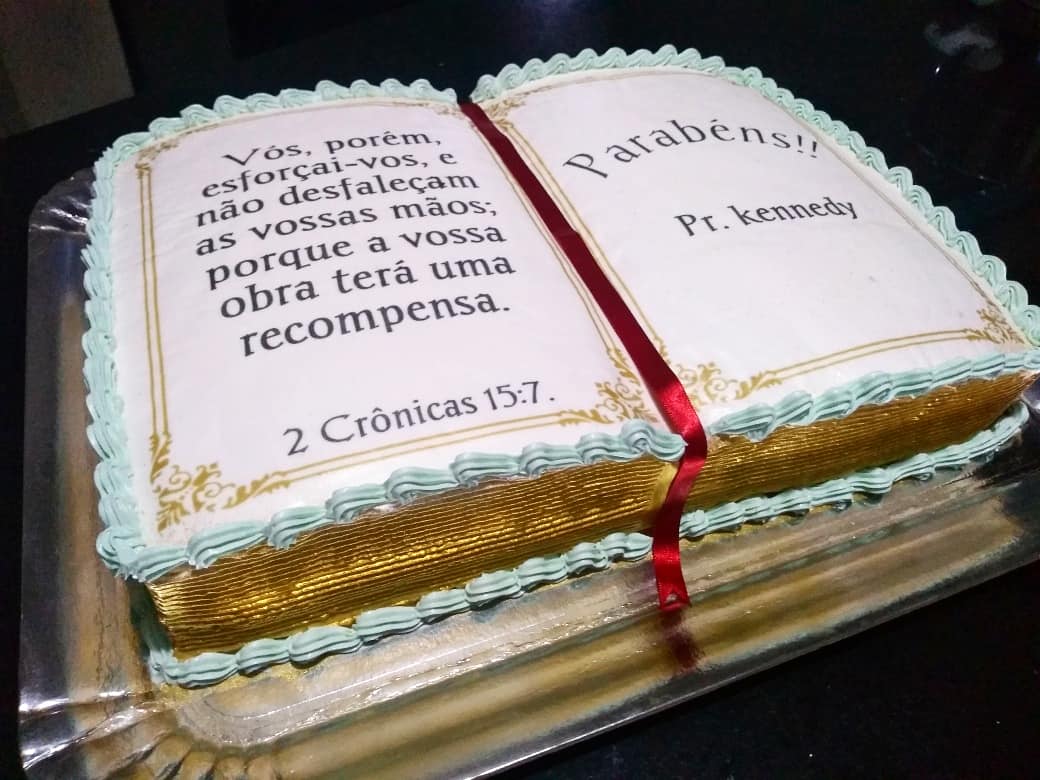 Vós, porém,
esforçai-vos, e
não desfaleçam
as vossas mãos;
porque a vossa
obra terá uma
recompensa.
2 Crônicas 15:7.
Parabéns!!
Pr. kennedy